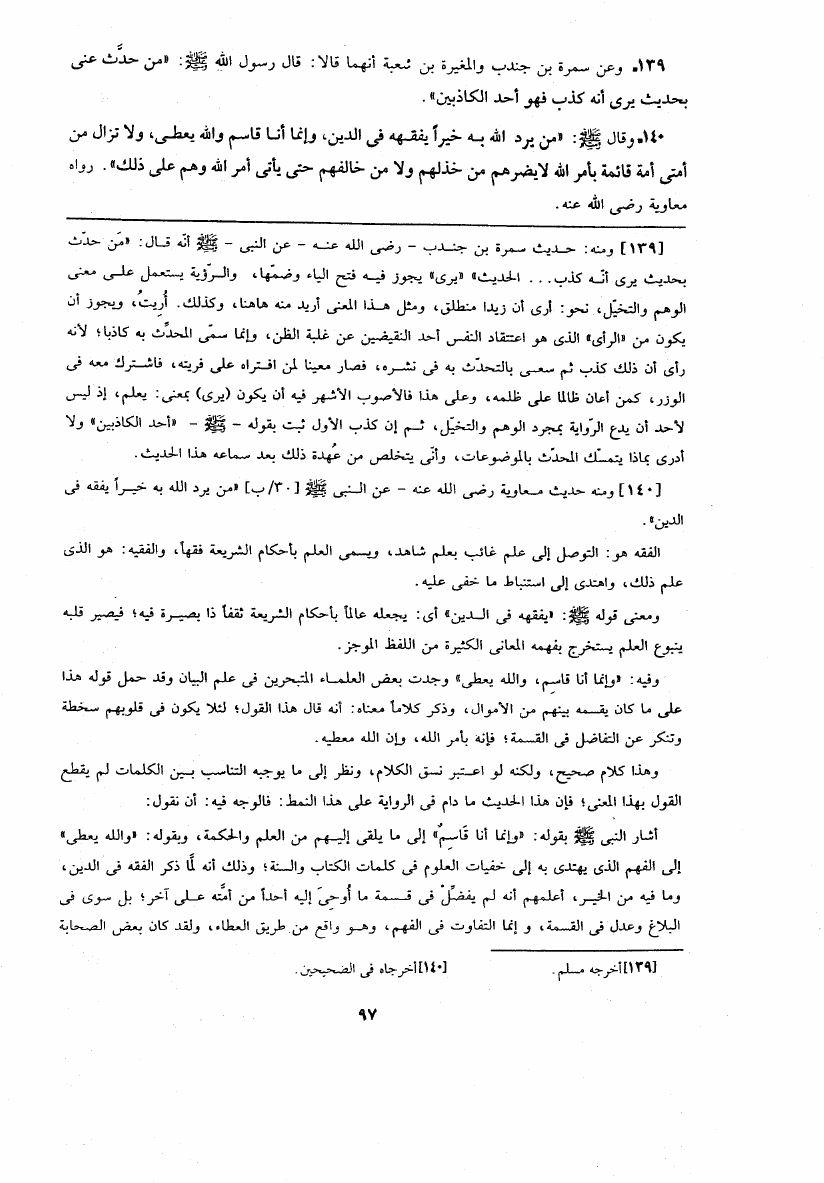 ١٣٩. وعن سمرة بن جندب والمغيرة بن شعبة أنهما قالا: قال رسول الله ﷺ: «من حدَّث عنى
بحديث يرى أنه كذب فهو أحد الكاذبين».
١٤٠. وقال ﷺ: «من يرد الله به خيراً يفقهه فى الدين، وإنما أنا قاسم والله يعطى، ولا تزال من
أمتى أمة قائمة بأمر الله لايضرهم من خذلهم ولا من خالفهم حتى يأتى أمر الله وهم على ذلك». رواه
معاوية رضى الله عنه.
[١٣٩] ومنه: حديث سمرة بن جندب – رضى الله عنه – عن النبى – ﷺ أنّه قال: «مَن حدّث
بحديث يرى أنه كذب... الحديث» «يرى» يجوز فيه فتح الياء وضمّها، والرّؤية يستعمل على معنى
الوهم والتخيّل، نحو: أرى أن زيدا منطلق، ومثل هذا المعنى أريد منه هاهنا، وكذلك. أُريتُ، ويجوز أن
يكون من «الرأى» الذى هو اعتقاد النفس أحد النقيضين عن غلبة الظن، وإنما سمّى المحدِّث به كاذبا؛ لأنه
رأى أن ذلك كذب ثم سعى بالتحدّث به فى نشره، فصار معينا لمن افتراه على فريته، فاشترك معه فى
الوزر، كمن أعان ظالما على ظلمه، وعلى هذا فالأصوب الأشهر فيه أن يكون (يرى) بمعنى: يعلم، إذ ليس
لأحد أن يدع الرّواية بمجرد الوهم والتخيّل، ثم إن كذب الأول ثبت بقوله – ﷺ – «أحد الكاذبين» ولا
أدرى بماذا يتمسّك المحدّث بالموضوعات، وأنّى يتخلص من عُهدة ذلك بعد سماعه هذا الحديث.
[١٤٠] ومنه حديث معاوية رضى الله عنه – عن النبى ﷺ [٣٠/ب] «من يرد الله به خيراً يفقه فى
الدين».
الفقه هو: التوصل إلى علم غائب بعلم شاهد، ويسمى العلم بأحكام الشريعة فقهاً، والفقيه: هو الذى
علم ذلك، واهتدى إلى استنباط ما خفى عليه.
ومعنى قوله ﷺ: «يفقهه فى الدين» أى: يجعله عالماً بأحكام الشريعة ثقفاً ذا بصيرة فيه؛ فيصير قلبه
ينبوع العلم يستخرج بفهمه المعانى الكثيرة من اللفظ الموجز.
وفيه: «وإنما أنا قاسم، والله يعطى» وجدت بعض العلماء المتبحرين فى علم البيان وقد حمل قوله هذا
على ما كان يقسمه بينهم من الأموال، وذكر كلاماً معناه: أنه قال هذا القول؛ لئلا يكون فى قلوبهم سخطة
وتنكر عن التفاضل فى القسمة؛ فإنه بأمر الله، وإن الله معطيه.
وهذا كلام صحيح، ولكنه لو اعتبر نسق الكلام، ونظر إلى ما يوجبه التناسب بين الكلمات لم يقطع
القول بهذا المعنى؛ فإن هذا الحديث ما دام فى الرواية على هذا النمط: فالوجه فيه: أن نقول:
أشار النبى ﷺ بقوله: «وإنما أنا قَاسِمٌ» إلى ما يلقى إليهم من العلم والحكمة، وبقوله: «والله يعطى»
إلى الفهم الذى يهتدى به إلى خفيات العلوم فى كلمات الكتاب والسنة؛ وذلك أنه لَمّا ذكر الفقه فى الدين،
وما فيه من الخير، أعلمهم أنه لم يفضِّلْ فى قسمة ما أُوحِىَ إليه أحداً من أمّته على آخر؛ بل سوى فى
البلاغ وعدل فى القسمة، و إنما التفاوت فى الفهم، وهو واقع من طريق العطاء، ولقد كان بعض الصحابة
[١٣٩] أخرجه مسلم.
[١٤٠] أخرجاه فى الصحيحين.
٩٧